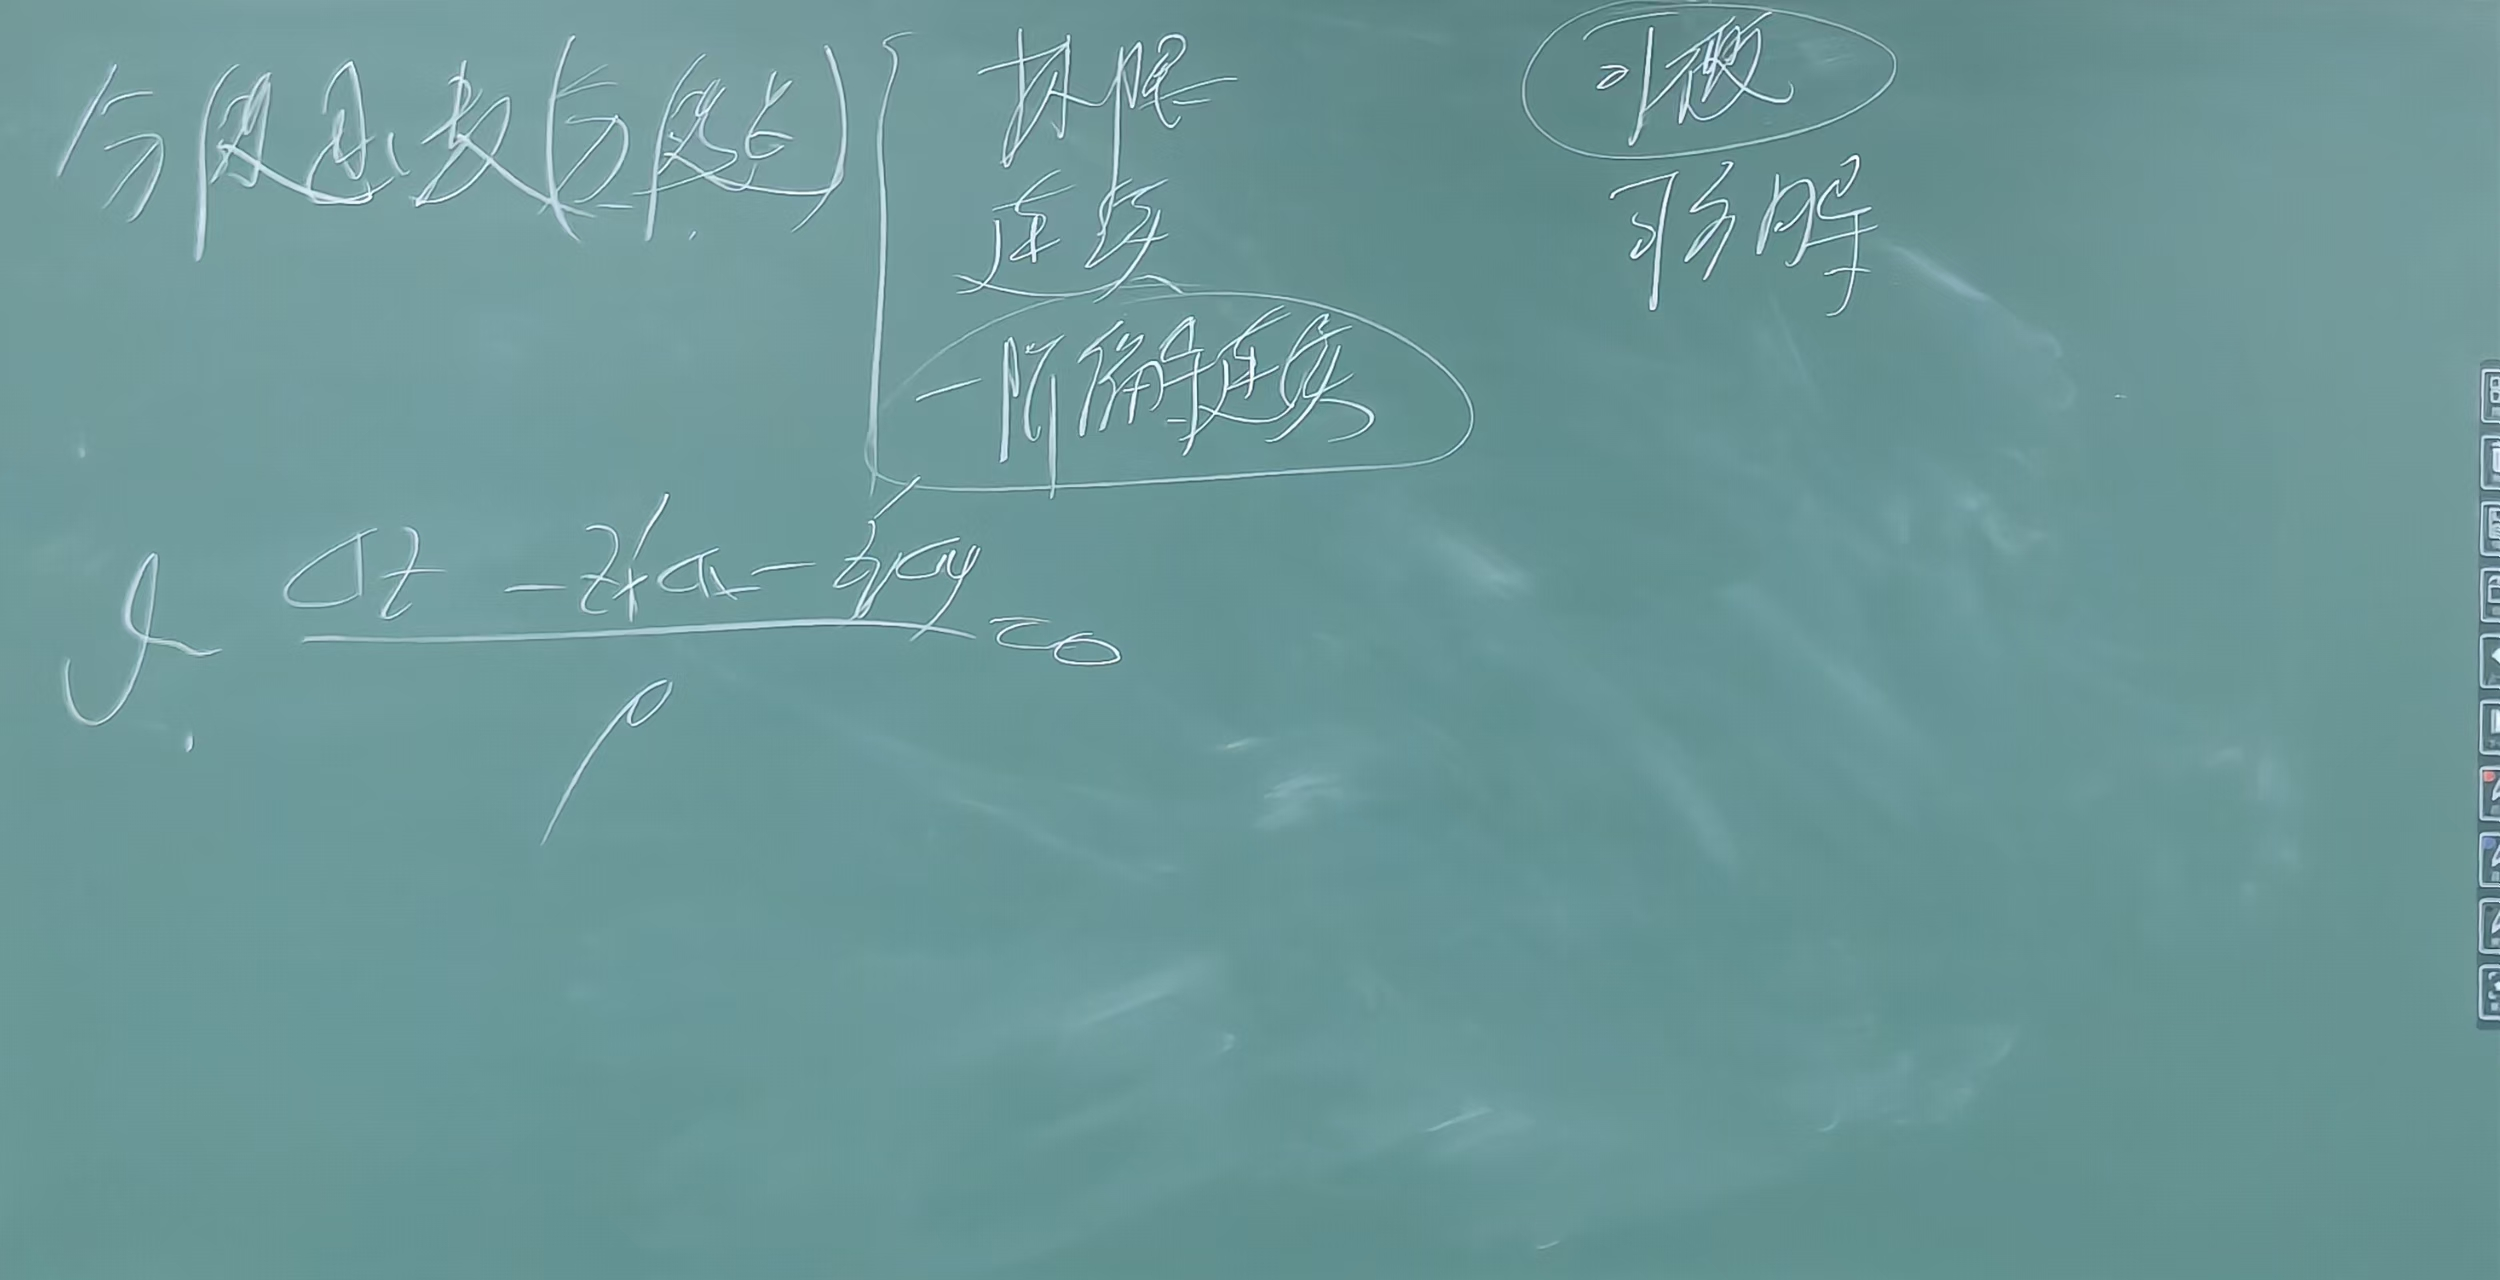 分段函数(分段点)
极限
连续
一阶偏导连续
可微
可偏导
lim (Δz - z'xΔx - z'yΔy) / ρ = 0